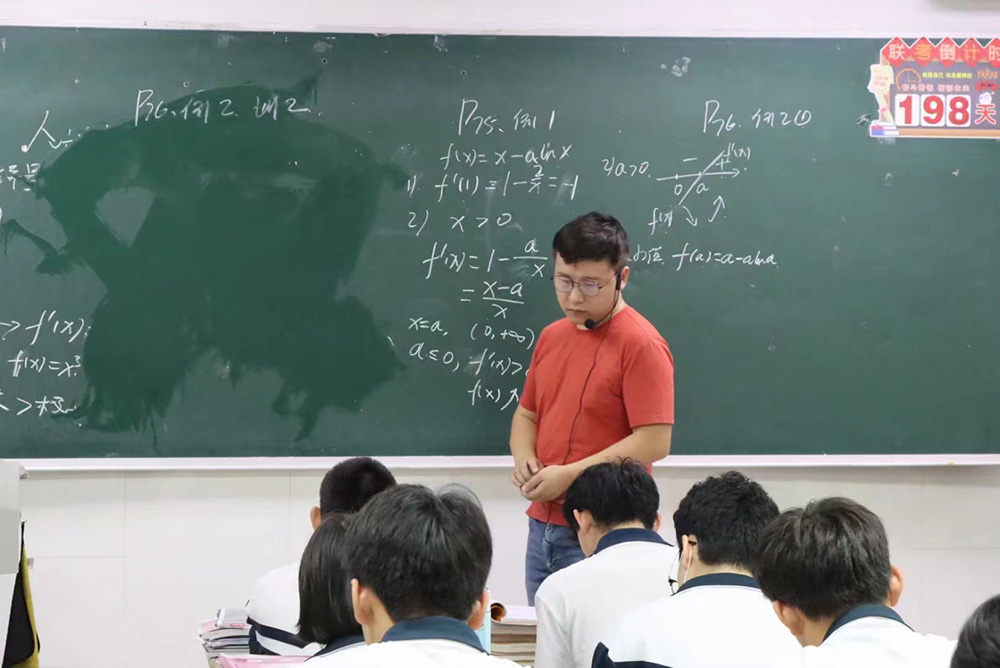 人
P6、例2 训2
→ f'(x)
f(x)=x³
P5、例1
f(x)=x-alnx
1) f'(1)=1-2/x=-1
2) x>0
f'(x)=1-a/x
=x-a/x
x=a, (0,+∞)
a≤0, f'(x)>
f(x)↗
P6、例2①
2) a>0
- + f'(x)
0 a
f(x) ↘ ↗
小值 f(a)=a-alna
联考倒计时
198天